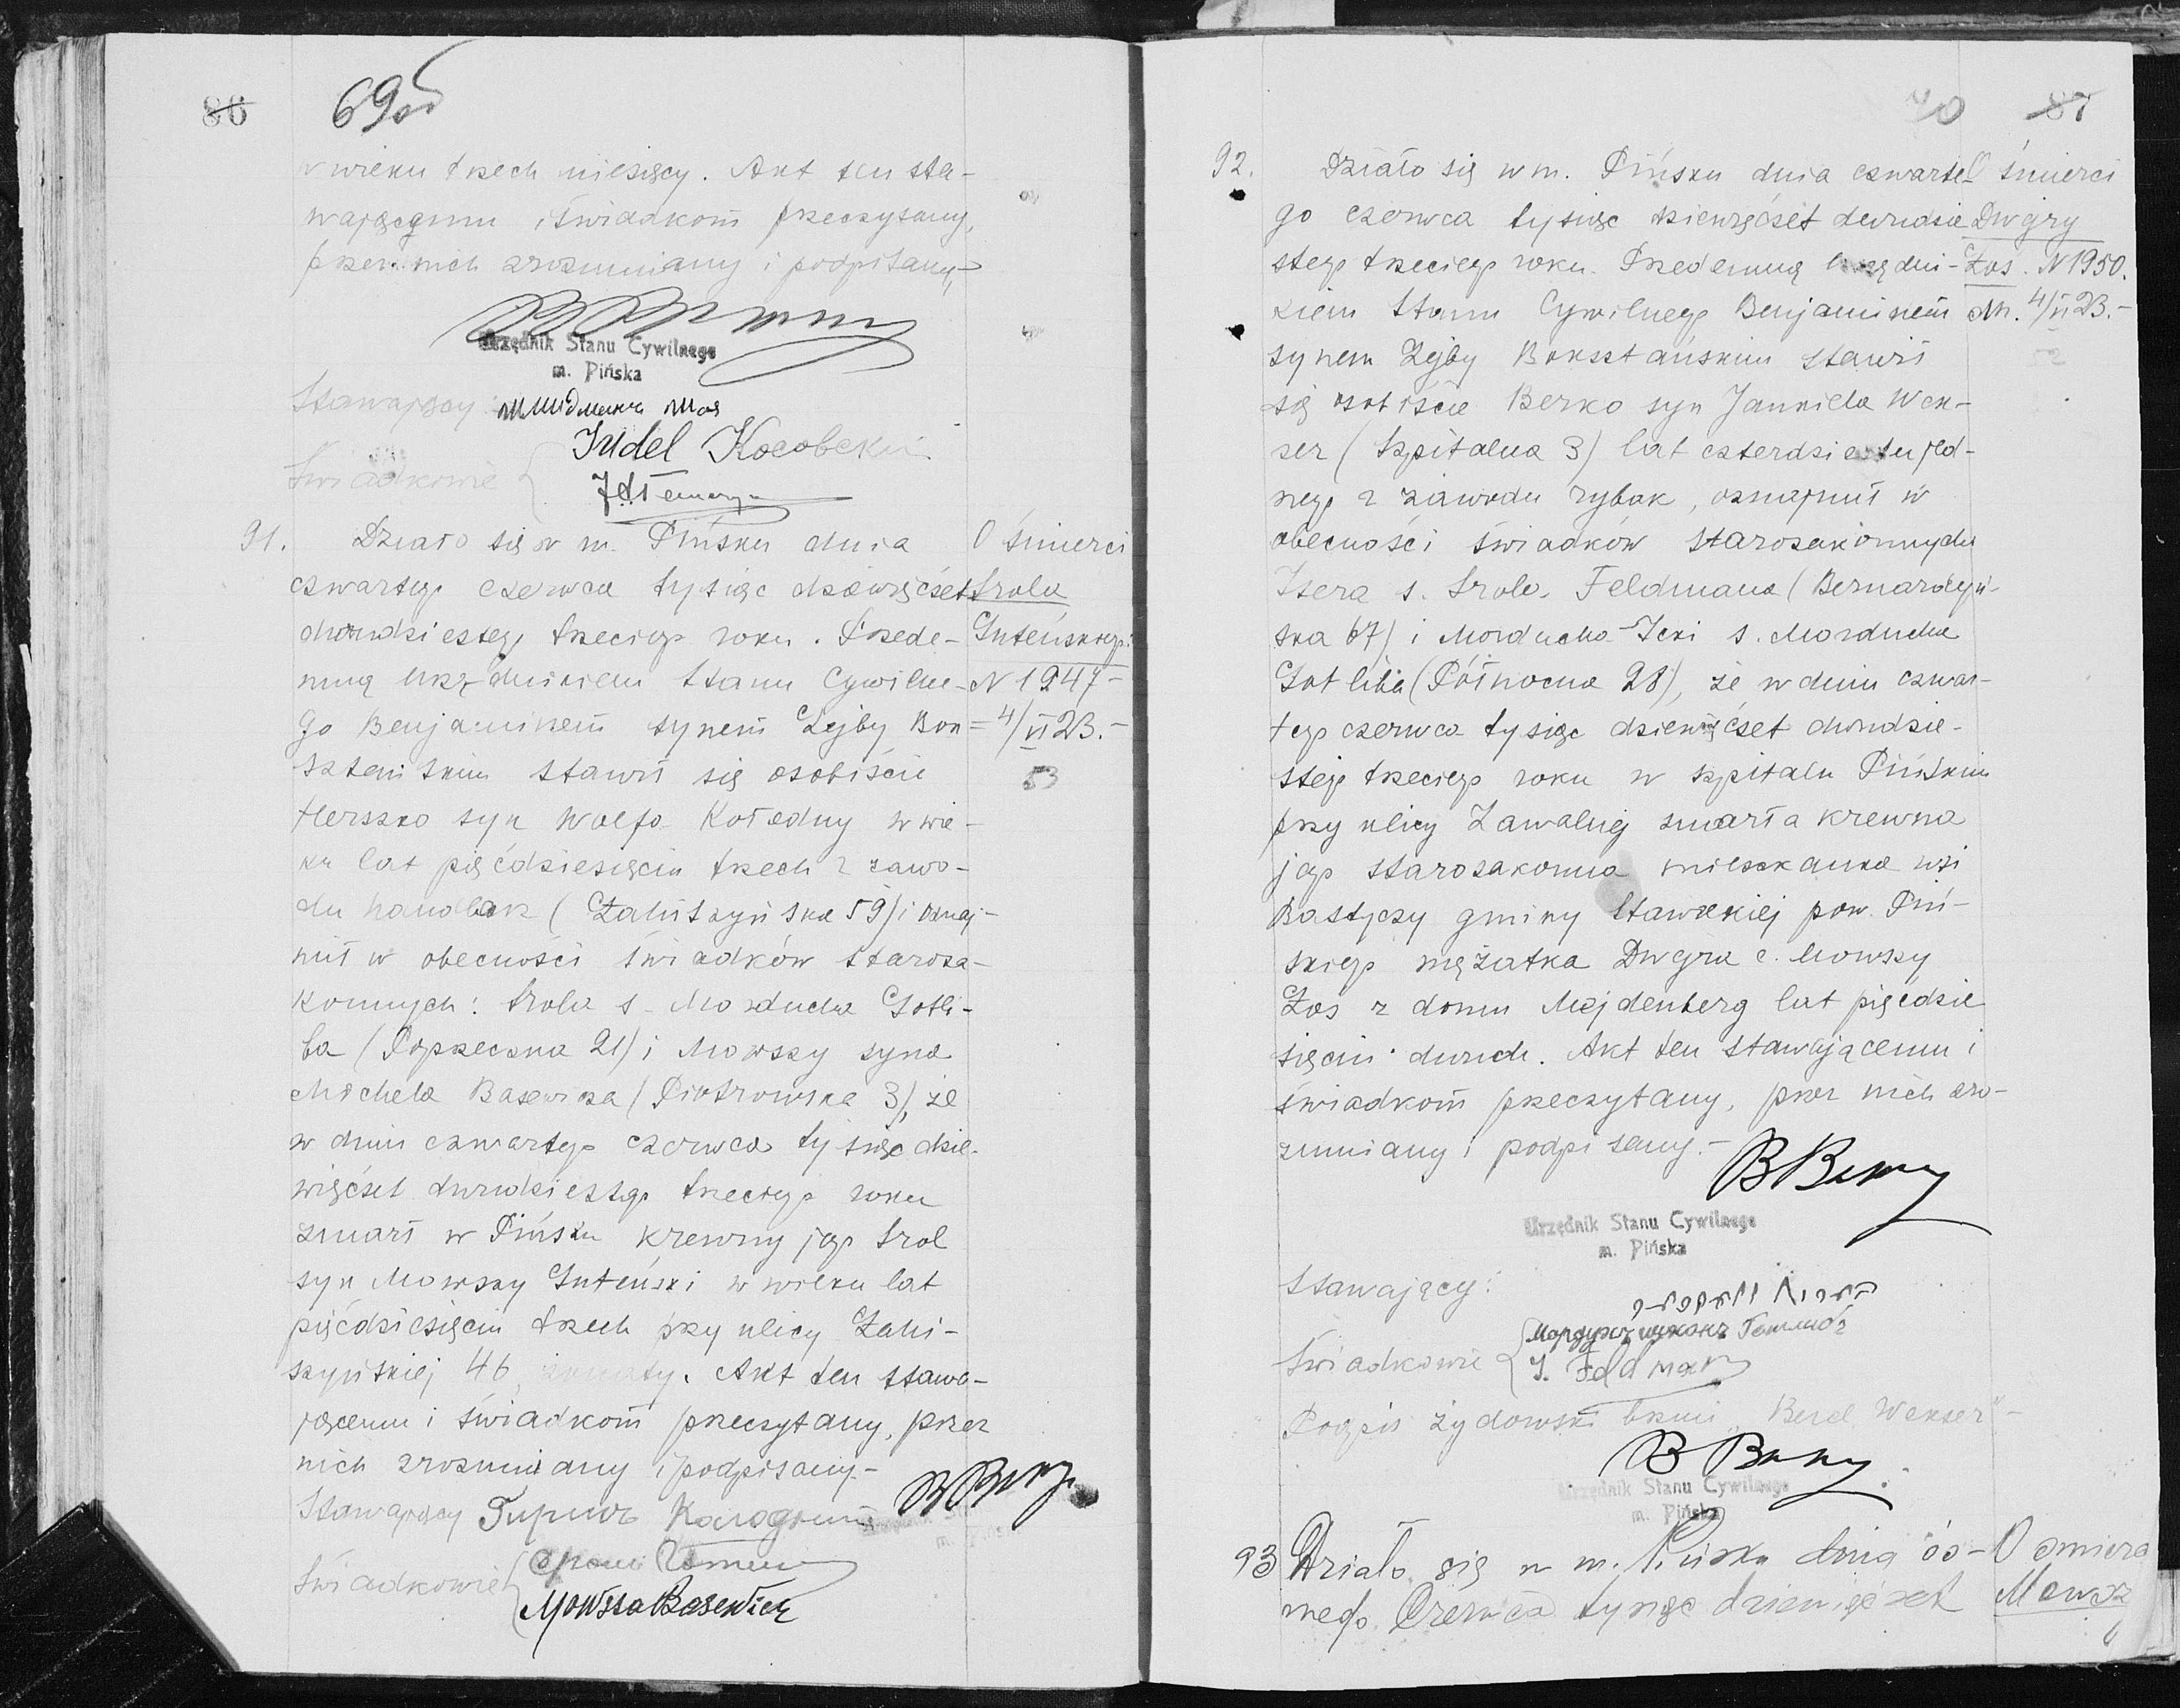 86 69об
w wieku trzech miesięcy. Akt ten sta-
wającemu i świadkom przeczytany,
przez nich zrozumiany i podpisany,-
Urzędnik Stanu Cywilnego
m. Pińska
Stawający:
Judel Kocobski
Świadkowie
91.
Działo się w m. Pińsku dnia
czwartego czerwca tysiąc dziewięćset
dwudziestego trzeciego roku. Przede-
mną urzędnikiem Stanu Cywilne-
go Benjaminem synem Lejby Bok-
sztańskim stawił się osobiście
Herszko syn Wolfa Kołodny w wie-
ku lat pięćdziesięciu trzech z zawo-
du handlarz (Łahiszyńska 59) i oznaj-
mił w obecności świadków staroza-
konnych: Srola s. Morducha Gotli-
ba (Poprzeczna 21) i Mowszy syna
Michela Basewicza (Piotrowska 3), że
w dniu czwartego czerwca tysiąc dzie-
więćset dwudziestego trzeciego roku
zmarł w Pińsku krewny jego Srol
syn Mowszy Guteński w wieku lat
pięćdziesięciu trzech przy ulicy Łahi-
szyńskiej 46, żonaty. Akt ten stawa-
jącemu i świadkom przeczytany, przez
nich zrozumiany i podpisany.-
Stawający
Świadkowie
Mowsza Basewicz
O śmierci
Srola
Guteńskiego.
N 1947-
4/VI 23.-
53
87
92.
Działo się w m. Pińsku dnia czwarte-
go czerwca tysiąc dziewięćset dwudzie
stego trzeciego roku. Przedemną Urzędni-
kiem Stanu Cywilnego Benjaminem
synem Lejby Boksztańskim stawił
się osobiście Berko syn Jankiela Wek-
ser (Szpitalna 3) lat czterdziestu jed-
nego z zawodu rybak, oznajmił w
obecności świadków starozakonnych
Isera s. Srola Feldmana (Bernardyń-
ska 67) i Morducha-Icki s. Morducha
Gotliba (Północna 28), że w dniu czwar-
tego czerwca tysiąc dziewięćset dwudzie-
stego trzeciego roku w szpitalu Pińskim
przy ulicy Zawalnej zmarła krewna
jego starozakonna mieszkanka wsi
Bastyczy gminy Stawskiej pow. Piń-
skiego mężatka Dwejra c. Mowszy
Łos z domu Majdenberg lat pięćdzie
sięciu dwuch. Akt ten stawającemu i
świadkom przeczytany, przez nich zro-
zumiany i podpisany.-
Urzędnik Stanu Cywilnego
m. Pińska
Stawający:
Świadkowie
I. Feldman
Podpis żydowski brzmi „Berel Wekser"-
Urzędnik Stanu Cywilnego
m. Pińska
O śmierci
Dwejry
Łos. N 1950.
4/VI 23.-
52
93
Działo się w m. Pińsku dnia ós-
mego Czerwca tysiąc dziewięćset
O śmierci